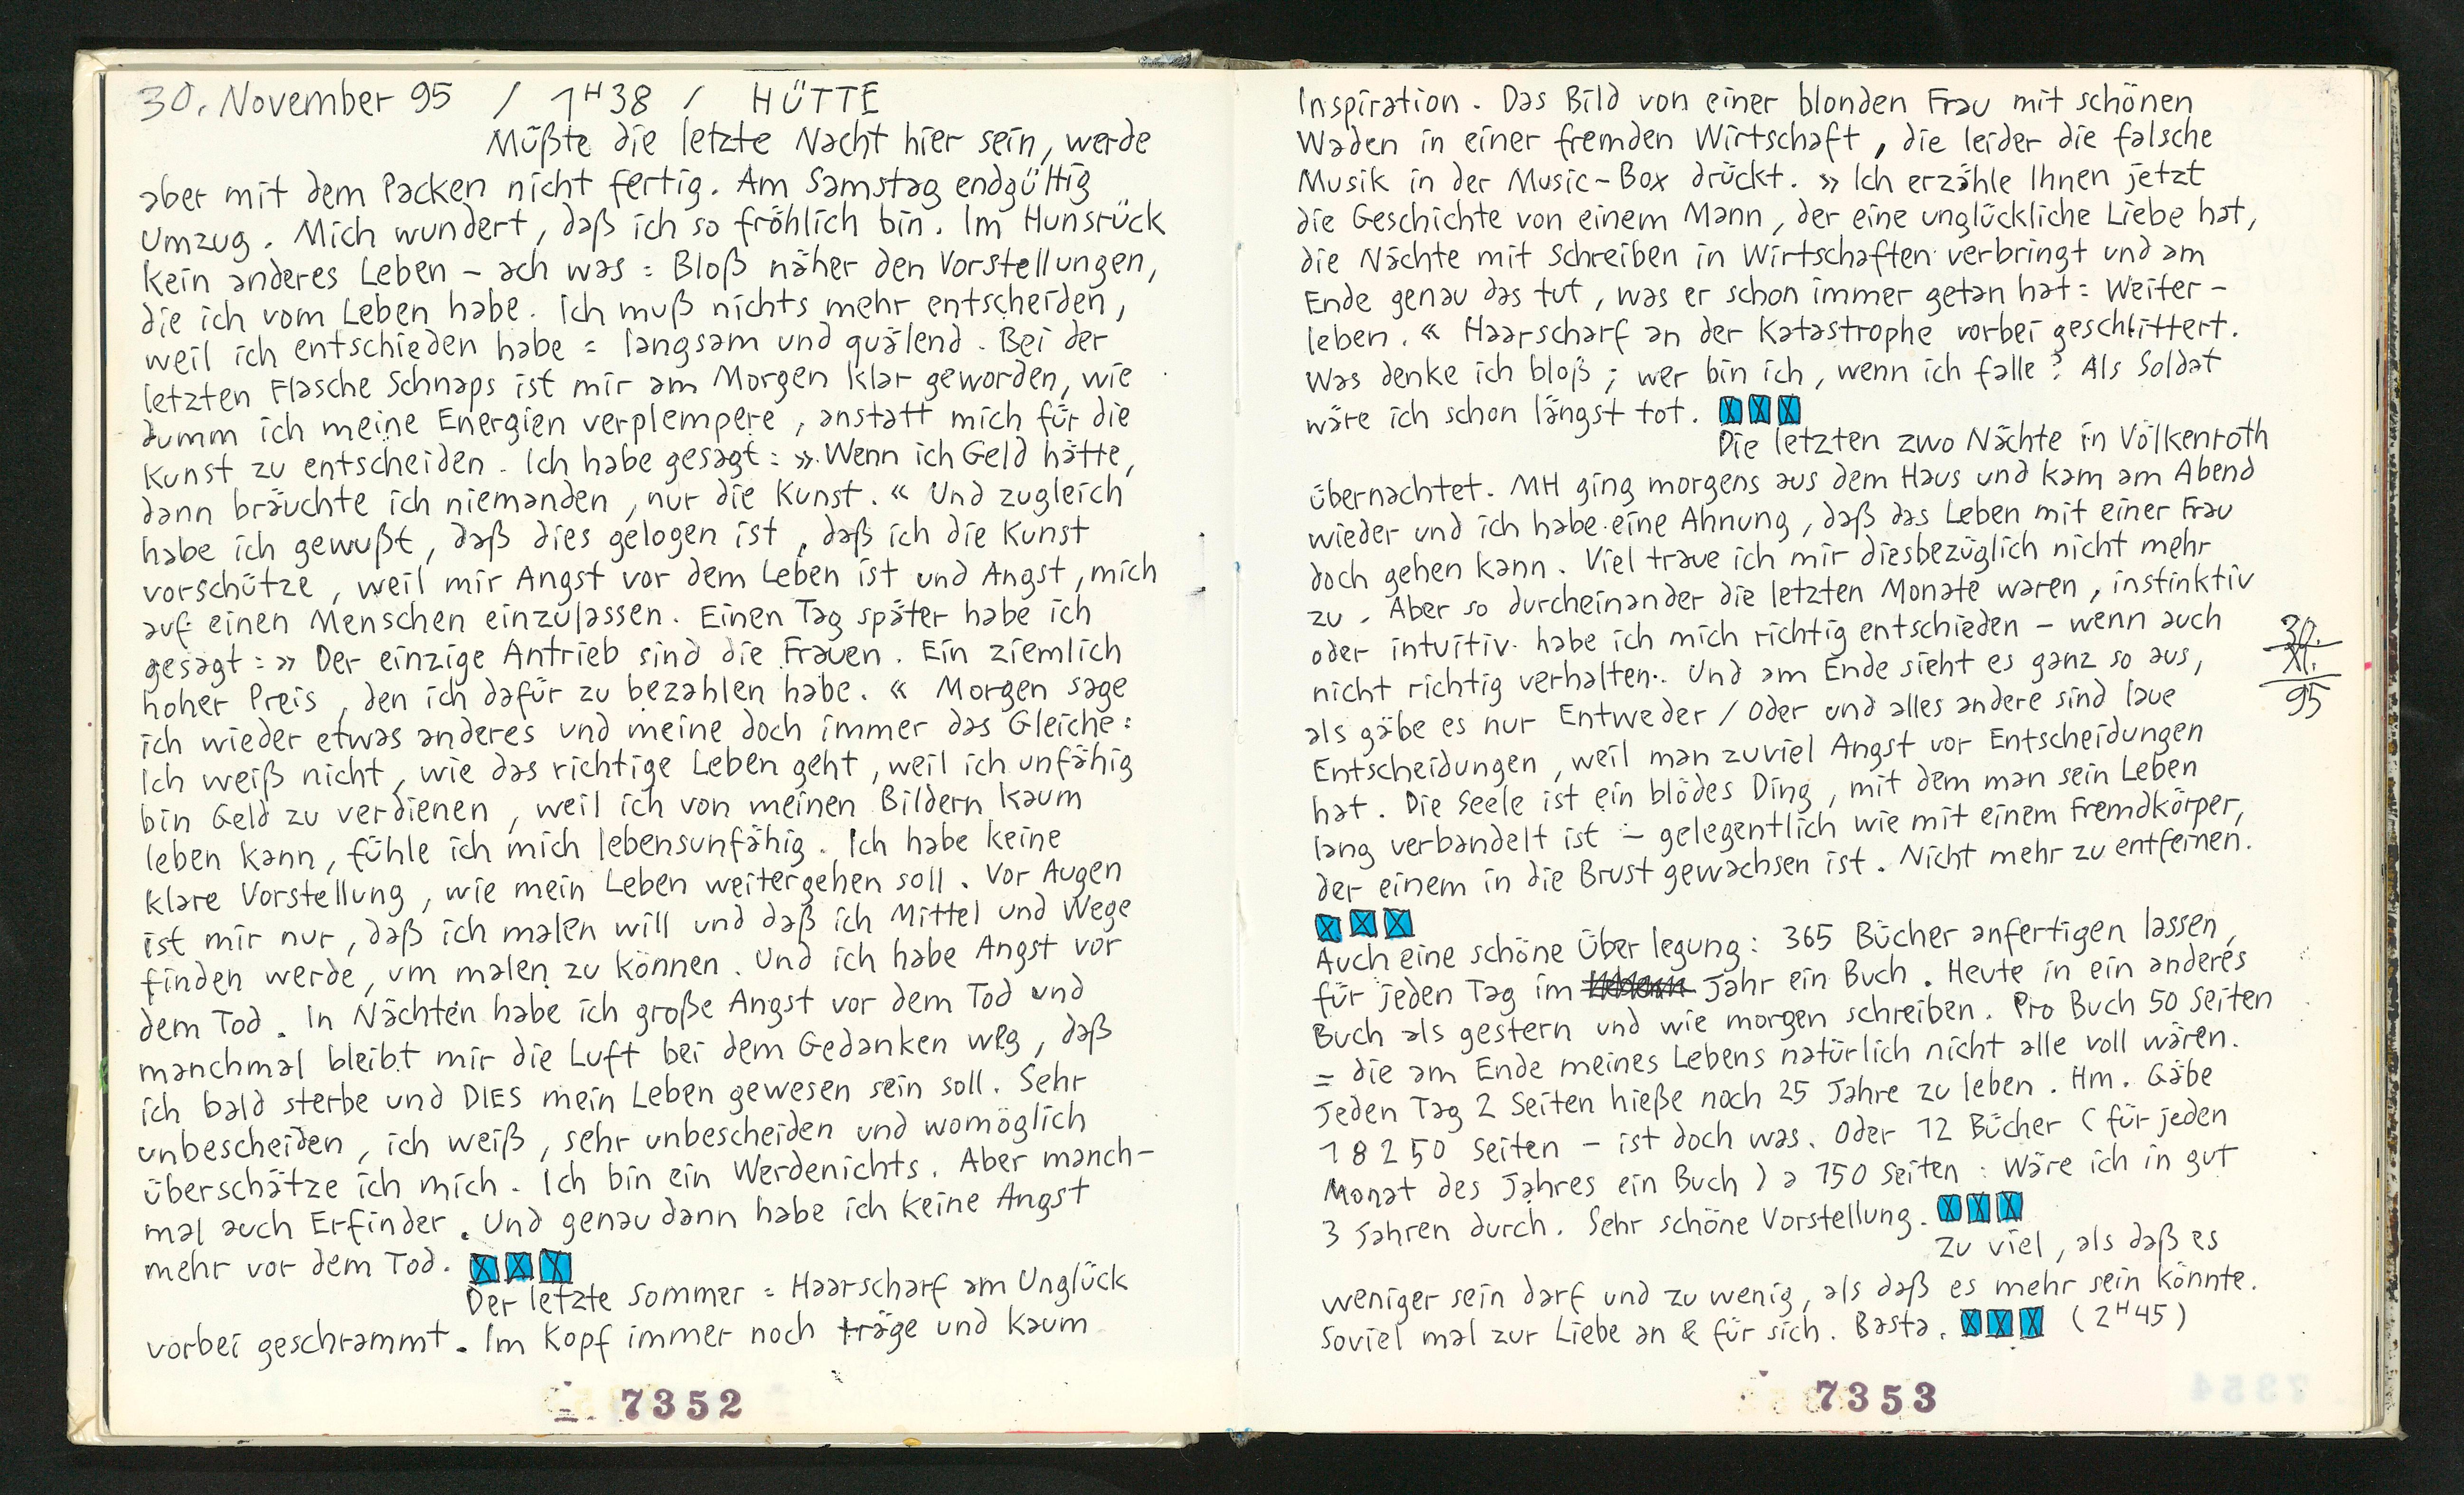 30. November 95 / 1H38 / HÜTTE
Müßte die letzte Nacht hier sein, werde
aber mit dem Packen nicht fertig. Am Samstag endgültig
Umzug. Mich wundert, daß ich so fröhlich bin. Im Hunsrück
kein anderes Leben – ach was: Bloß näher den Vorstellungen,
die ich vom Leben habe. Ich muß nichts mehr entscheiden,
weil ich entschieden habe = langsam und quälend. Bei der
letzten Flasche Schnaps ist mir am Morgen klar geworden, wie
dumm ich meine Energien verplempere, anstatt mich für die
Kunst zu entscheiden. Ich habe gesagt: »Wenn ich Geld hätte,
dann bräuchte ich niemanden, nur die Kunst.« Und zugleich
habe ich gewußt, daß dies gelogen ist, daß ich die Kunst
vorschütze, weil mir Angst vor dem Leben ist und Angst, mich
auf einen Menschen einzulassen. Einen Tag später habe ich
gesagt: »Der einzige Antrieb sind die Frauen. Ein ziemlich
hoher Preis, den ich dafür zu bezahlen habe.« Morgen sage
ich wieder etwas anderes und meine doch immer das Gleiche:
Ich weiß nicht, wie das richtige Leben geht, weil ich unfähig
bin Geld zu verdienen, weil ich von meinen Bildern kaum
leben kann, fühle ich mich lebensunfähig. Ich habe keine
klare Vorstellung, wie mein Leben weitergehen soll. Vor Augen
ist mir nur, daß ich malen will und daß ich Mittel und Wege
finden werde, um malen zu können. Und ich habe Angst vor
dem Tod. In Nächten habe ich große Angst vor dem Tod und
manchmal bleibt mir die Luft bei dem Gedanken weg, daß
ich bald sterbe und DIES mein Leben gewesen sein soll. Sehr
unbescheiden, ich weiß, sehr unbescheiden und womöglich
überschätze ich mich. Ich bin ein Werdenichts. Aber manch-
mal auch Erfinder. Und genau dann habe ich keine Angst
mehr vor dem Tod. XXX
Der letzte Sommer = Haarscharf am Unglück
vorbei geschrammt. Im Kopf immer noch träge und kaum
7352
Inspiration. Das Bild von einer blonden Frau mit schönen
Waden in einer fremden Wirtschaft, die leider die falsche
Musik in der Music-Box drückt. »Ich erzähle Ihnen jetzt
die Geschichte von einem Mann, der eine unglückliche Liebe hat,
die Nächte mit Schreiben in Wirtschaften verbringt und am
Ende genau das tut, was er schon immer getan hat: Weiter-
leben.« Haarscharf an der Katastrophe vorbei geschlittert.
Was denke ich bloß; wer bin ich, wenn ich falle? Als Soldat
wäre ich schon längst tot. XXX
Die letzten zwo Nächte in Völkenroth
übernachtet. MH ging morgens aus dem Haus und kam am Abend
wieder und ich habe eine Ahnung, daß das Leben mit einer Frau
doch gehen kann. Viel traue ich mir diesbezüglich nicht mehr
zu. Aber so durcheinander die letzten Monate waren, instinktiv
oder intuitiv habe ich mich richtig entschieden – wenn auch
nicht richtig verhalten. Und am Ende sieht es ganz so aus,
als gäbe es nur Entweder/Oder und alles andere sind laue
Entscheidungen, weil man zuviel Angst vor Entscheidungen
hat. Die Seele ist ein blödes Ding, mit dem man sein Leben
lang verbandelt ist – gelegentlich wie mit einem Fremdkörper,
der einem in die Brust gewachsen ist. Nicht mehr zu entfernen.
XXX
Auch eine schöne Überlegung: 365 Bücher anfertigen lassen,
für jeden Tag im Jahr ein Buch. Heute in ein anderes
Buch als gestern und wie morgen schreiben. Pro Buch 50 Seiten
= die am Ende meines Lebens natürlich nicht alle voll wären.
Jeden Tag 2 Seiten hieße noch 25 Jahre zu leben. Hm. Gäbe
18250 Seiten – ist doch was. Oder 12 Bücher (für jeden
Monat des Jahres ein Buch) a 150 Seiten: Wäre ich in gut
3 Jahren durch. Sehr schöne Vorstellung. XXX
Zu viel, als daß es
weniger sein darf und zu wenig, als daß es mehr sein könnte.
Soviel mal zur Liebe an & für sich. Basta. XXX (2H45)
30.
XI.
95
7353